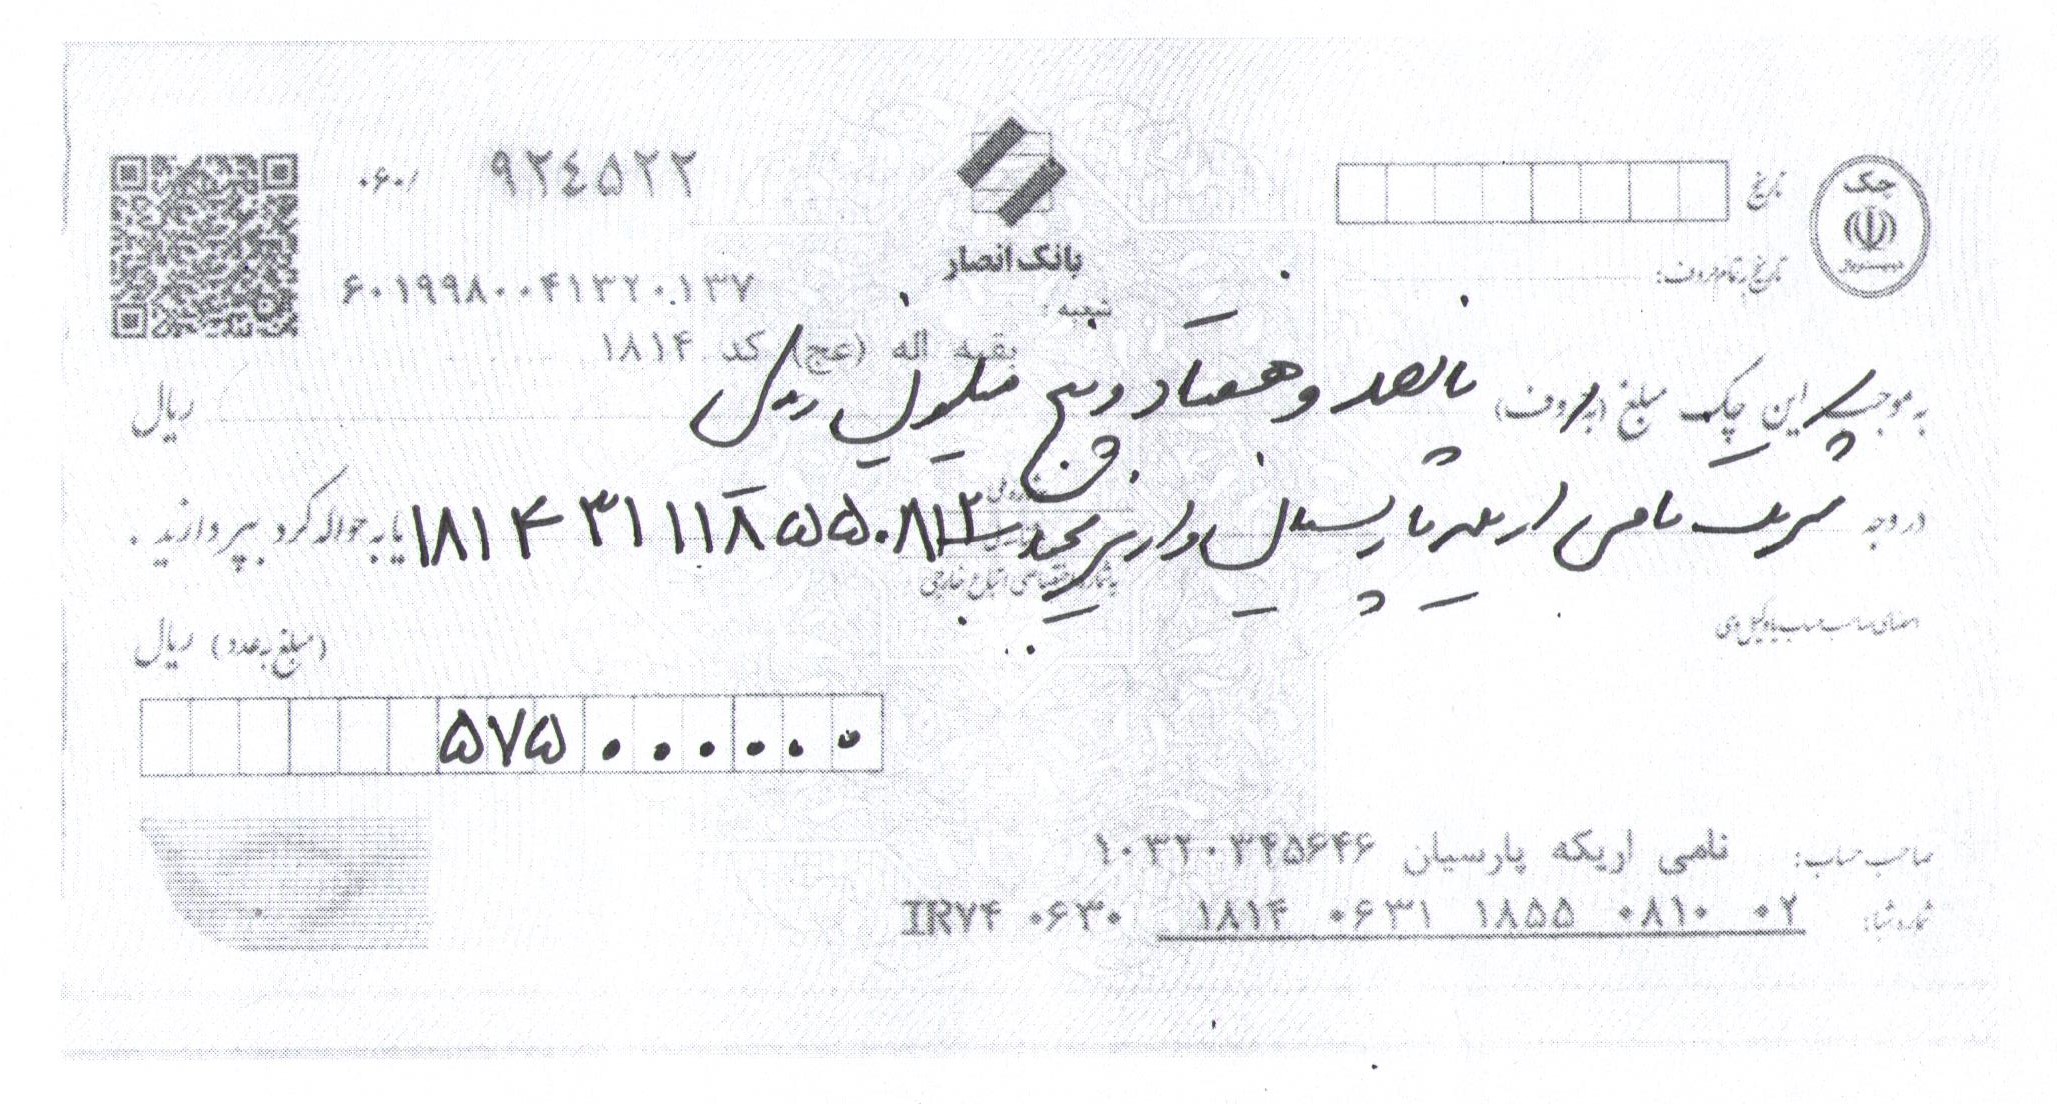 چک
تاریخ
۹۲۴۵۲۲ ۰۶۰/
بانک انصار
تاریخ به تمام حروف:
۶۰۱۹۹۸۰۰۴۱۳۲۰۱۳۷
شعبه :
بقیه اله (عج) کد ۱۸۱۴
به موجب این چک مبلغ (به حروف) پانصد و هفتاد و پنج میلیون ریال ریال
در وجه شرکت نامی اریکه پارسیان واریز بحساب ۱۸۱۴۳۱۱۱۸۵۵۰۸۱۲ یا به حواله کرد بپردازید .
به شماره اختصاصی اتباع خارجی
امضای صاحب حساب یا وکیل وی
(مبلغ به عدد) ریال
۵۷۵۰۰۰۰۰۰
صاحب حساب: نامی اریکه پارسیان ۱۰۳۲۰۳۴۵۶۴۶
شماره شبا: IR۷۴ ۰۶۳۰ ۱۸۱۴ ۰۶۳۱ ۱۸۵۵ ۰۸۱۰ ۰۲